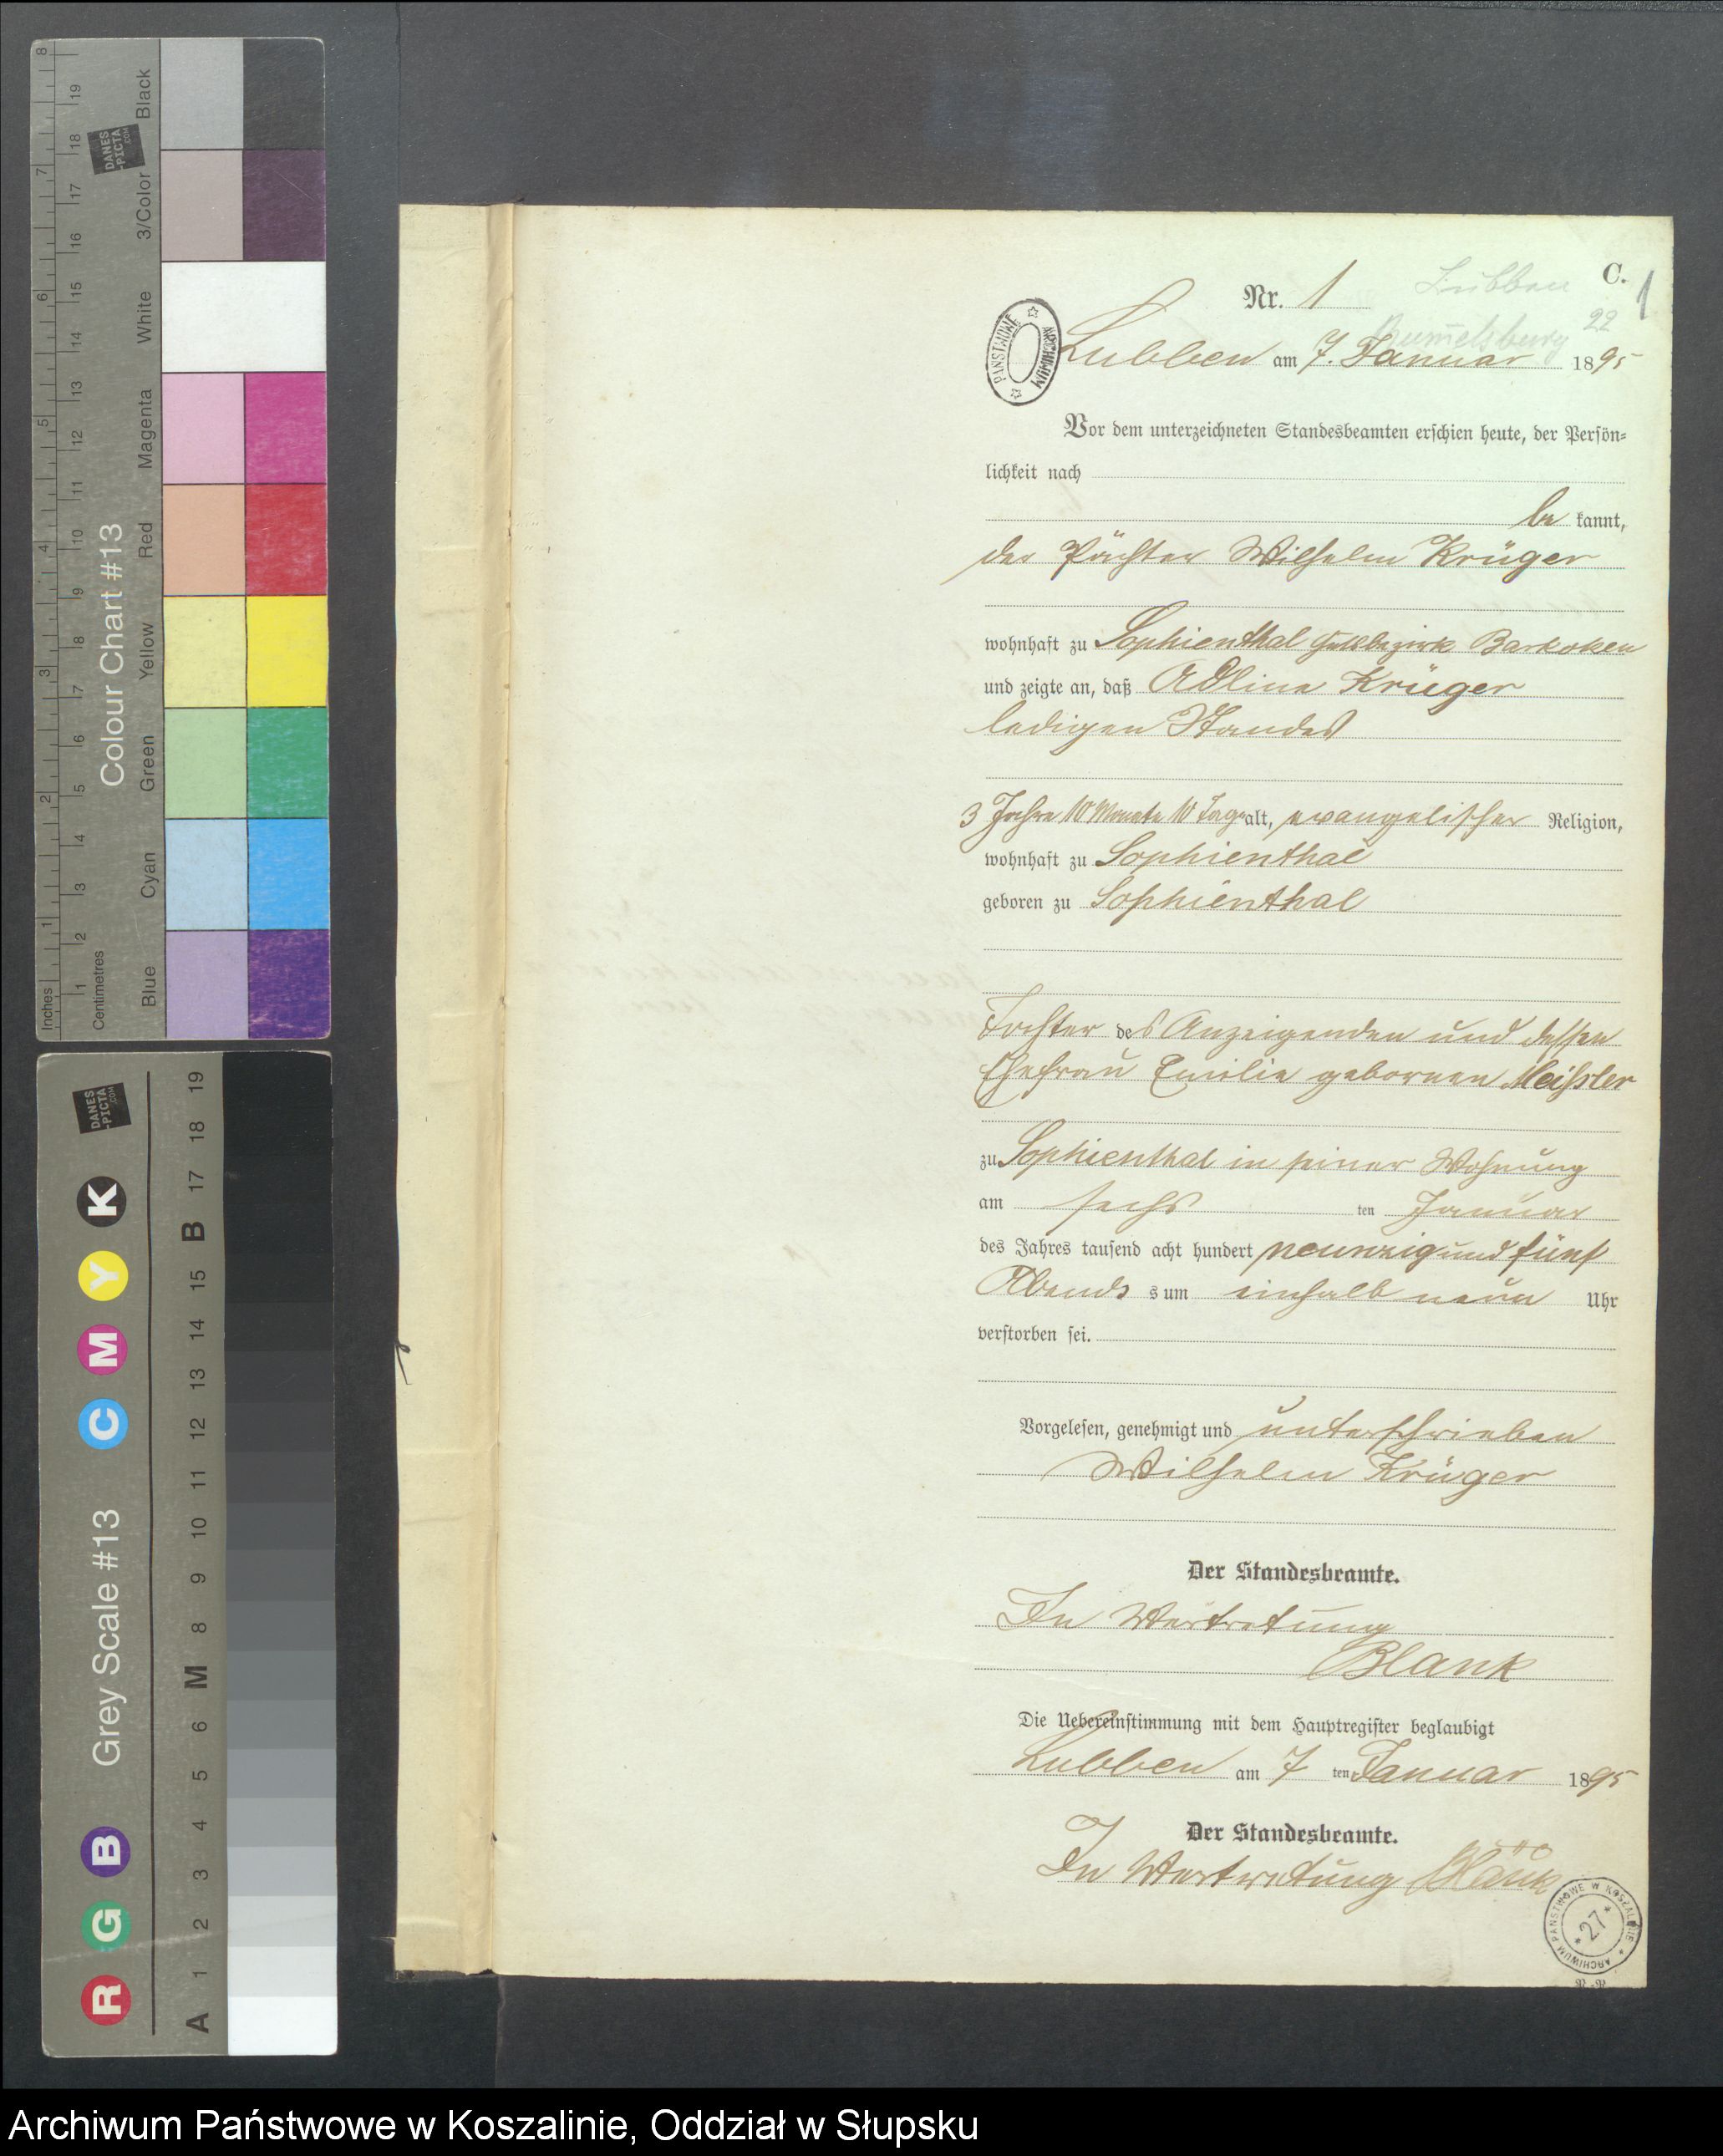 C.
1
Nr. 1
Lubben
22
Rummelsburg
Lubben am 7. Januar 1895
PAŃSTWOWE ARCHIWUM
Vor dem unterzeichneten Standesbeamten erschien heute, der Persön=
lichkeit nach
be kannt,
der Pächter Wilhelm Krüger
wohnhaft zu Sophienthal Gutsbezirk Barkoken
und zeigte an, daß Adline Krüger
ledigen Standes
3 Jahre 10 Monate 10 Tage alt, evangelischer Religion,
wohnhaft zu Sophienthal
geboren zu Sophienthal
Tochter des Anzeigenden und dessen
Ehefrau Emilie gebornen Meißler
zu Sophienthal in seiner Wohnung
am sechs ten Januar
des Jahres tausend acht hundert neunzig und fünf
Abends s um einhalb neun Uhr
verstorben sei.
Vorgelesen, genehmigt und unterschrieben
Wilhelm Krüger
Der Standesbeamte.
In Vertretung
Blank
Die Uebereinstimmung mit dem Hauptregister beglaubigt
Lubben am 7 ten Januar 1895
Der Standesbeamte.
In Vertretung Blank
ARCHIWUM PAŃSTWOWE W KOSZALINIE
* 27 *
Colour Chart #13
Blue Cyan Green Yellow Red Magenta White 3/Color Black
Inches 1 2 3 4 5 6 7 8
Centimetres 1 2 3 4 5 6 7 8 9 10 11 12 13 14 15 16 17 18 19
DANES
-PICTA
.COM
Grey Scale #13
R G B C M Y K
A 1 2 3 4 5 6 M 8 9 10 11 12 13 14 15 B 17 18 19
DANES
-PICTA
.COM
Archiwum Państwowe w Koszalinie, Oddział w Słupsku